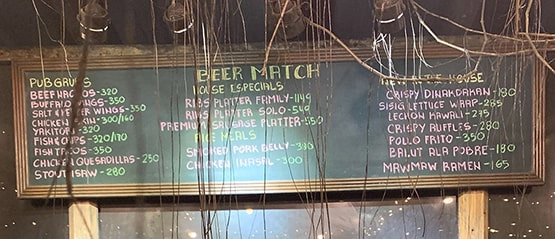 BEER MATCH
PUB GRUBS
BEEF NACHOS-320
BUFFALO WINGS-350
SALT & PEPPER WINGS-350
CHICKEN SKIN-300/160
YAKITORI-320
FISH & CHIPS-320/170
FISH TACOS-350
CHICKEN QUESADILLAS-250
STOUT SISAW-280
HOUSE ESPECIALS
RIBS PLATTER FAMILY-1149
RIBS PLATTER SOLO-549
PREMIUM SAUSAGE PLATTER-550
RICE MEALS
SMOKED PORK BELLY-390
CHICKEN INASAL-300
HOUSE
CRISPY DINAKDAKAN-190
SISIG LETTUCE WRAP-285
LECHON KAWALI-275
CRISPY RUFFLES-280
POLLO FRITO-350
BALUT ALA POBRE-180
MAWMAW RAMEN-165